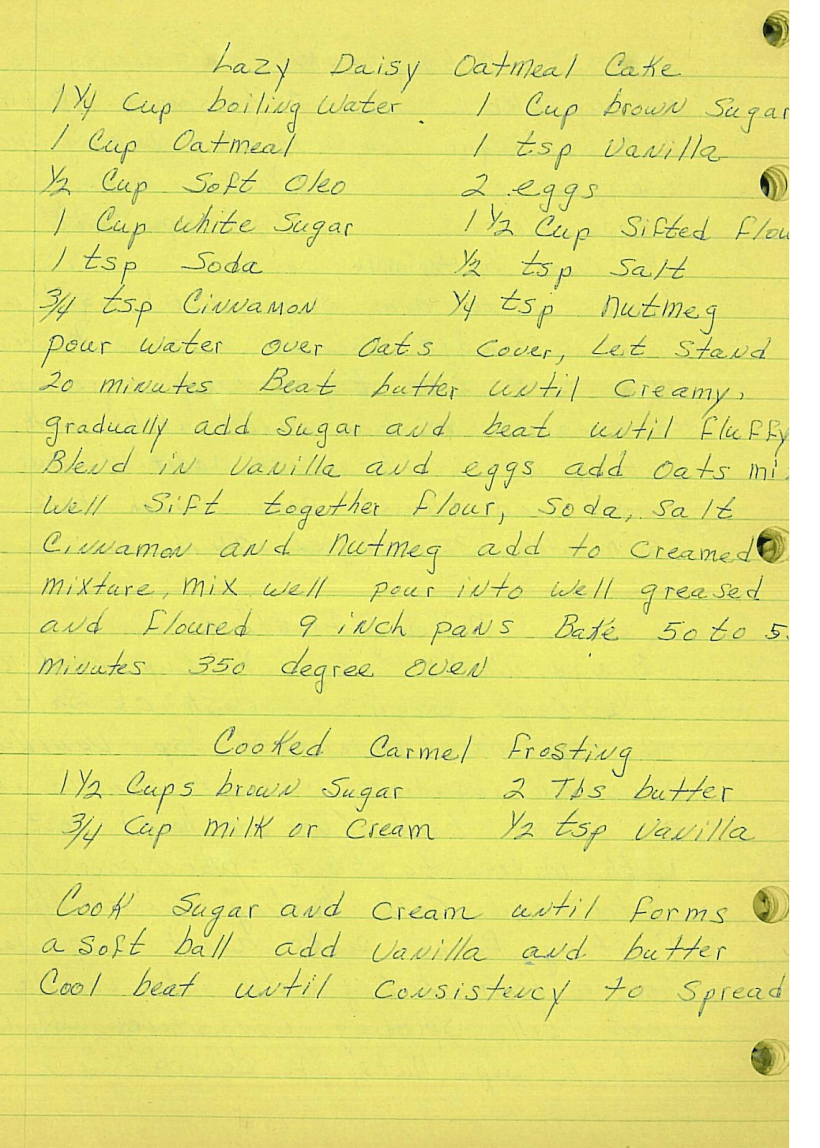 Lazy Daisy Oatmeal Cake
1 1/4 Cup boiling Water 1 Cup brown Sugar
1 Cup Oatmeal 1 tsp Vanilla
1/2 Cup Soft Oleo 2 eggs
1 Cup white Sugar 1 1/2 Cup Sifted Flou
1 tsp Soda 1/2 tsp Salt
3/4 tsp Cinnamon 1/4 tsp Nutmeg
pour water over Oats Cover, Let Stand
20 minutes Beat butter until Creamy,
gradually add Sugar and beat until Fluffy
Blend in Vanilla and eggs add Oats mi
Well Sift together Flour, Soda, Salt
Cinnamon and Nutmeg add to Creamed
mixture, mix well pour into well greased
and Floured 9 inch pans Bake 50 to 5
minutes 350 degree oven
Cooked Carmel Frosting
1 1/2 Cups brown Sugar 2 Tbs butter
3/4 Cup milk or Cream 1/2 tsp Vanilla
Cook Sugar and Cream until Forms
a Soft ball add Vanilla and butter
Cool beat until Consistency to Spread